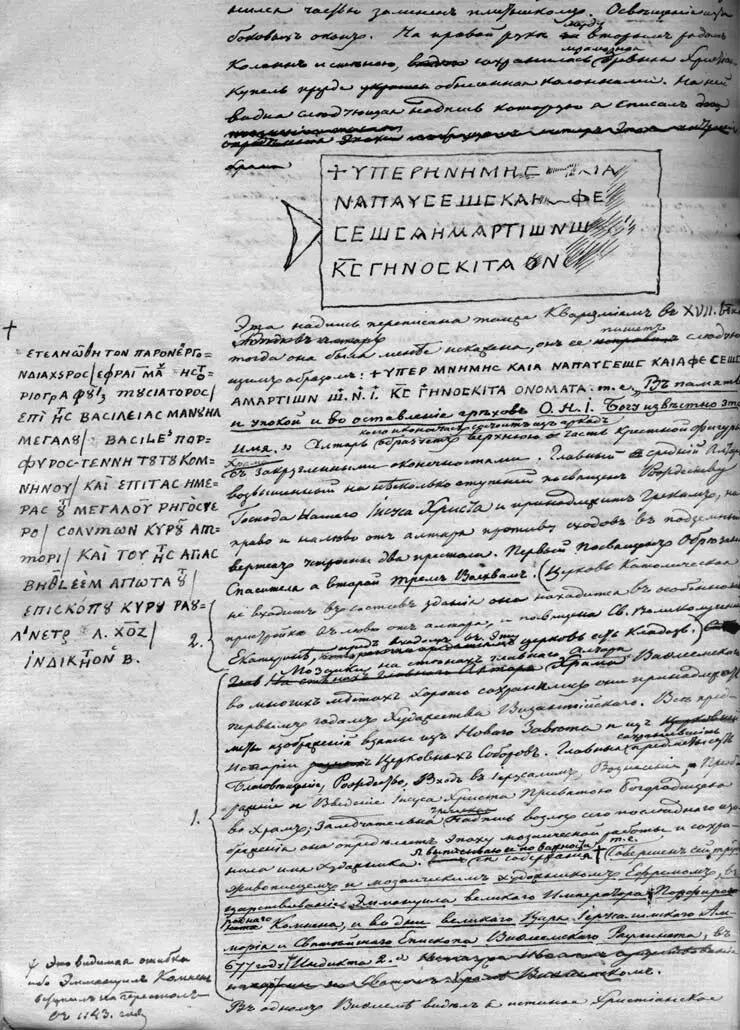 нился частью замененъ плитышкомъ. Освещение изъ
боковыхъ оконъ. На правой руке между вторымъ рядомъ
Колоннъ и стеною, сохранилась мраморная древняя Христ.
купель пруда обписанная колоннами. На ней
видна следующая надпись которую я списалъ
храма
+ΥΠΕΡΗΝΗΜΗС ΚΑΙΑ
ΝΑΠΑΥСΕШСΚΑΗ ΦΕ
СΕШСΑΗΜΑΡΤΙШΝШ
ΚС ΓΗΝΟСΚΙΤΑ ΟΝΟ
Эта надпись переписана тоже Кварезмiемъ въ XVII. векe
тогда она была менее искажена, онъ ее пишетъ следую
щимъ образомъ: +ΥΠΕΡ ΜΝΗΜΗС ΚΑΙΑ ΝΑΠΑΥСΕШС ΚΑΙΑΦΕСΕШС
ΑΜΑΡΤΙШΝ Ш. Ν. Ι. ΚС ΓΗΝΟСΚΙΤΑ ΟΝΟΜΑΤΑ: т.е. „Въ память
и упокой и во оставленiе греховъ О.Н.I. Богу известно это
Имя.„ Алтарь образуетъ верхнюю часть Крестной фигуры
Храма съ закругленными оконечностями. Главный средний Алтарь
возвышенный на несколько ступеней посвященъ Рождеству
Господа Нашего Iисуса Христа и принадлежитъ Грекамъ, на
право и налево отъ алтаря противу сходовъ въ подземный
вертепъ устроены два престола. Первый Посвященъ Обрезанiю
Спасителя а второй Тремъ Волхвамъ. (Церковь Католическая
не входитъ въ составъ зданiя она находится въ особенной
пристройке въ лево отъ алтаря, и посвящена Св. Великомученице
Екатерине, предъ входомъ въ эту церковь есть Кладезь.)
Мозаики на стенахъ главнаго алтаря Храма Вифлеемскаго
во многихъ местахъ хорошо сохранились они принадлежатъ
первымъ годамъ Художества Византiйскаго. Все пред-
меты изображенiй взяты изъ Новаго Завета и изъ
исторiи Церковныхъ Соборовъ. Главные сохранившiеся предметы суть
Благовещенiе, Рождество, Входъ въ Iерусалимъ, Вознесенiе, Преоб-
раженiе и Введенiе Iисуса Христа Пресвятою Богородицею
во Храмъ; Замечательна греческая надпись возле сего последняго изо
браженiя она определяетъ эпоху мозаической работы и сохра-
нила имя художника. Я выписываю и по важности ея содержанiя т.е. (Совершенъ сей трудъ
живописцемъ и мозаическимъ художникомъ Ефремомъ, въ
царствованiе Эммануила великаго Императора Порфиро
роднаго Комнина, и во дни великаго Царя Iерусалимскаго Ам-
морiя и Святейшаго Епископа Вифлеемскаго Раулинета, въ
677 году Индикта 2.
Въ одномъ Вифлееме виделъ я истинно Христiанское
+
ΕΤΕΛΗШΘΗ ΤΟΝ ΠΑΡΟΝ ΕΡΓΟ-
ΝΔΙΑΧΞΡΟС/ΕΦΡΑΙΓ ΜΑ ΗСΤΟ
ΡΙΟΓΡΑΦΟΥ Ξ ΜΟΥСΙΑΤΟΡΟС/
ΕΠΙ ΤΗС ΒΑСΙΛΕΙΑС ΜΑΝΟΥΗΛ
ΜΕΓΑΛΟΥ/ ΒΑСΙΛΕС ΠΟΡ-
ΦΥΡΟС-ΓΕΝΝΗΤΟΥ ΤΟΥ ΚΟΜ-
ΝΗΝΟΥ/ ΚΑΙ ΕΠΙ ΤΑС ΗΜΕ-
ΡΑС ΤΟΥ ΜΕΓΑΛΟΥ ΡΗΓΟС ΥΕ
ΡΟ/СΟΛΥΜШΝ ΚΥΡΟΥ ΑΜ
ΜΟΡΙ/ ΚΑΙ ΤΟΥ ΤΗС ΑΓΙΑС
ΒΗΘΛΕΕΜ ΑΠШΤΑΤΟΥ
ΕΠΙСΚΟΠΟΥ ΚΥΡΟΥ ΡΑΟΥ-
ΛΙΝΕΤΟ Λ. ΧΟΖ/
ΙΝΔΙΚΤΗΟΝ Β.
2.
1.
Это видимая ошибка
ибо Эммануилъ Комненъ
вступилъ на престолъ
въ 1143. году